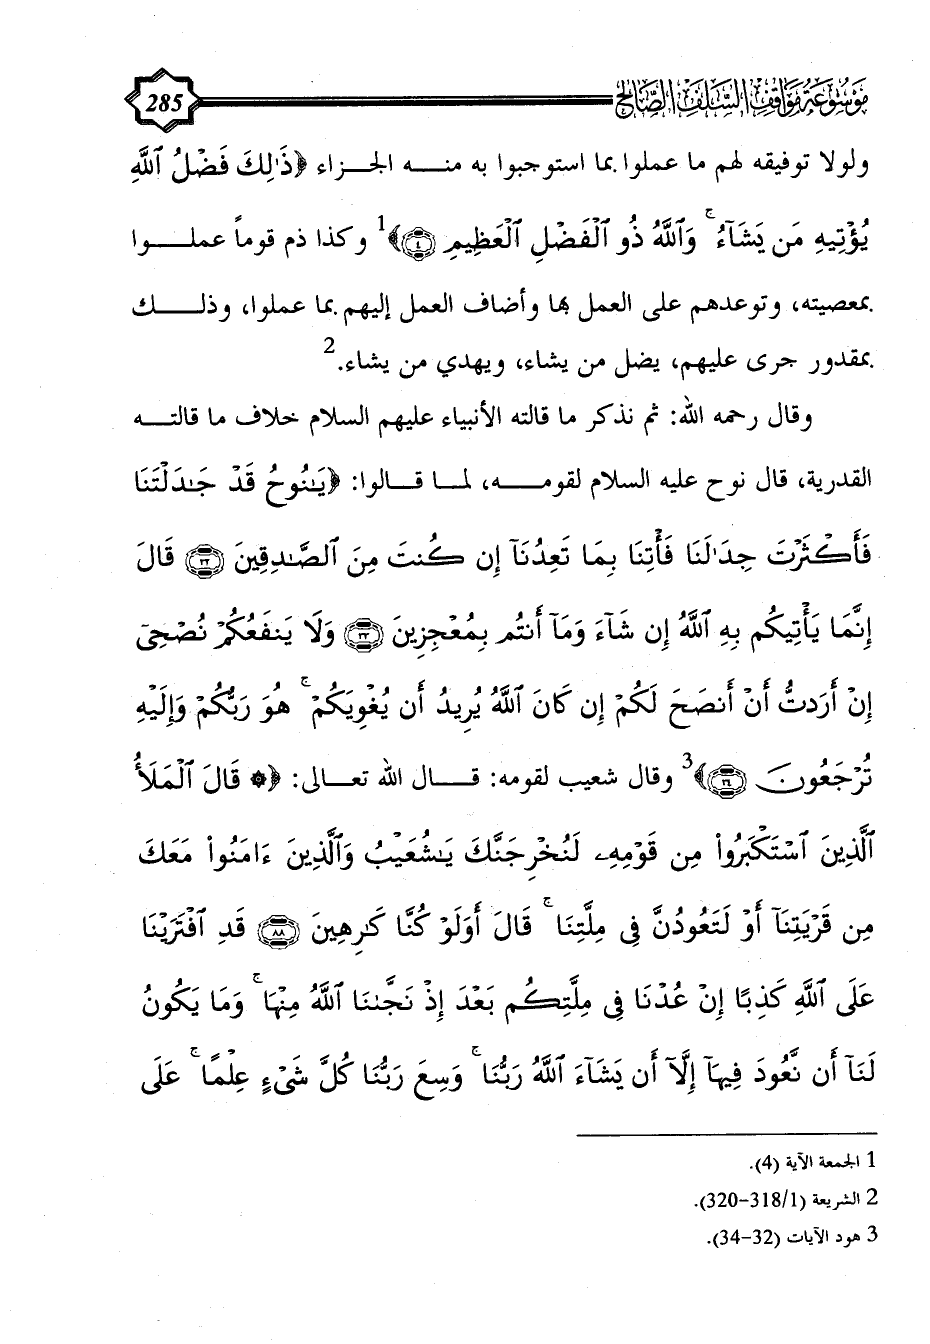 موسوعة مواقف السلف الصالح
285
ولولا توفيقه لهم ما عملوا بما استوجبوا به منه الجزاء ﴿ذَٰلِكَ فَضْلُ ٱللَّهِ
يُؤْتِيهِ مَن يَشَآءُ ۚ وَٱللَّهُ ذُو ٱلْفَضْلِ ٱلْعَظِيمِ ٤﴾1 وكذا ذم قوماً عملوا
بمعصيته، وتوعدهم على العمل بها وأضاف العمل إليهم بما عملوا، وذلك
بمقدور جرى عليهم، يضل من يشاء، ويهدي من يشاء.2
وقال رحمه الله: ثم نذكر ما قالته الأنبياء عليهم السلام خلاف ما قالته
القدرية، قال نوح عليه السلام لقومه، لما قالوا: ﴿يَٰنُوحُ قَدْ جَٰدَلْتَنَا
فَأَكْثَرْتَ جِدَٰلَنَا فَأْتِنَا بِمَا تَعِدُنَآ إِن كُنتَ مِنَ ٱلصَّٰدِقِينَ ٣٢ قَالَ
إِنَّمَا يَأْتِيكُم بِهِ ٱللَّهُ إِن شَآءَ وَمَآ أَنتُم بِمُعْجِزِينَ ٣٣ وَلَا يَنفَعُكُمْ نُصْحِىٓ
إِنْ أَرَدتُّ أَنْ أَنصَحَ لَكُمْ إِن كَانَ ٱللَّهُ يُرِيدُ أَن يُغْوِيَكُمْ ۚ هُوَ رَبُّكُمْ وَإِلَيْهِ
تُرْجَعُونَ ٣٤﴾3 وقال شعيب لقومه: قال الله تعالى: ﴿۞ قَالَ ٱلْمَلَأُ
ٱلَّذِينَ ٱسْتَكْبَرُوا۟ مِن قَوْمِهِۦ لَنُخْرِجَنَّكَ يَٰشُعَيْبُ وَٱلَّذِينَ ءَامَنُوا۟ مَعَكَ
مِن قَرْيَتِنَآ أَوْ لَتَعُودُنَّ فِى مِلَّتِنَا ۚ قَالَ أَوَلَوْ كُنَّا كَٰرِهِينَ ٨٨ قَدِ ٱفْتَرَيْنَا
عَلَى ٱللَّهِ كَذِبًا إِنْ عُدْنَا فِى مِلَّتِكُم بَعْدَ إِذْ نَجَّىٰنَا ٱللَّهُ مِنْهَا ۚ وَمَا يَكُونُ
لَنَآ أَن نَّعُودَ فِيهَآ إِلَّآ أَن يَشَآءَ ٱللَّهُ رَبُّنَا ۚ وَسِعَ رَبُّنَا كُلَّ شَىْءٍ عِلْمًا ۚ عَلَى
1 الجمعة الآية (4).
2 الشريعة (1/318-320).
3 هود الآيات (32-34).